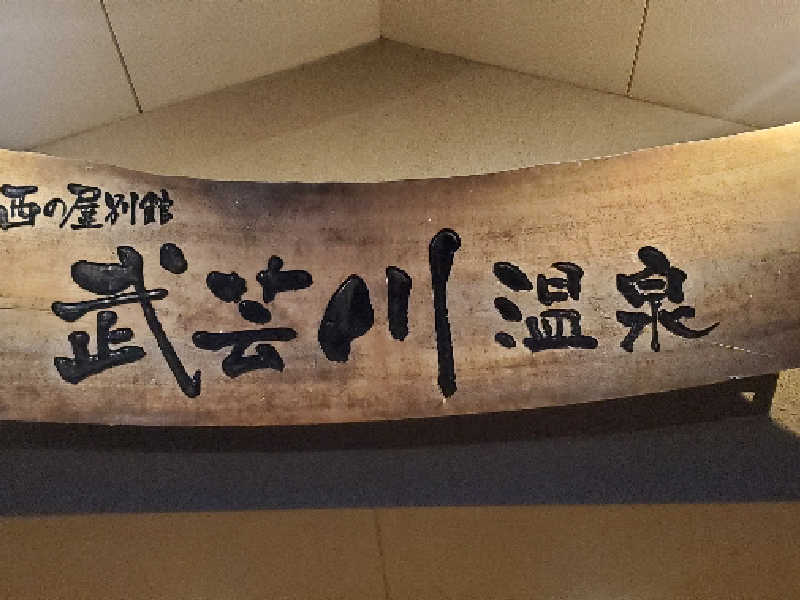 西の屋別館
武芸川温泉